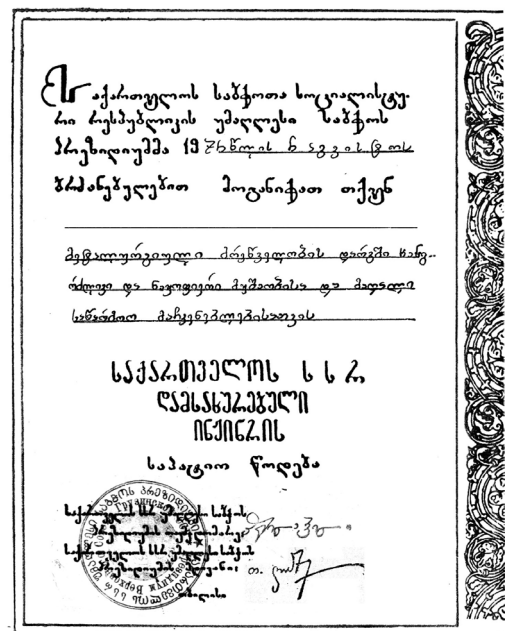 საქართველოს საბჭოთა სოციალისტუ-
რი რესპუბლიკის უმაღლესი საბჭოს
პრეზიდიუმმა 19 წლის აგვისტოს
ბრძანებულებით მოგანიჭათ თქვენ
მეტალურგიული მრეწველობის დარგში ხანგ-
რძლივი და ნაყოფიერი მუშაობისა და მაღალი
საწარმოო მაჩვენებლებისათვის
საქართველოს ს ს რ
დამსახურებული
ინჟინრის
საპატიო წოდება
საქართველოს სსრ უმაღლესი საბჭოს
პრეზიდიუმის თავმჯდომარე
საქართველოს სსრ უმაღლესი საბჭოს
პრეზიდიუმის მდივანი
თბილისი